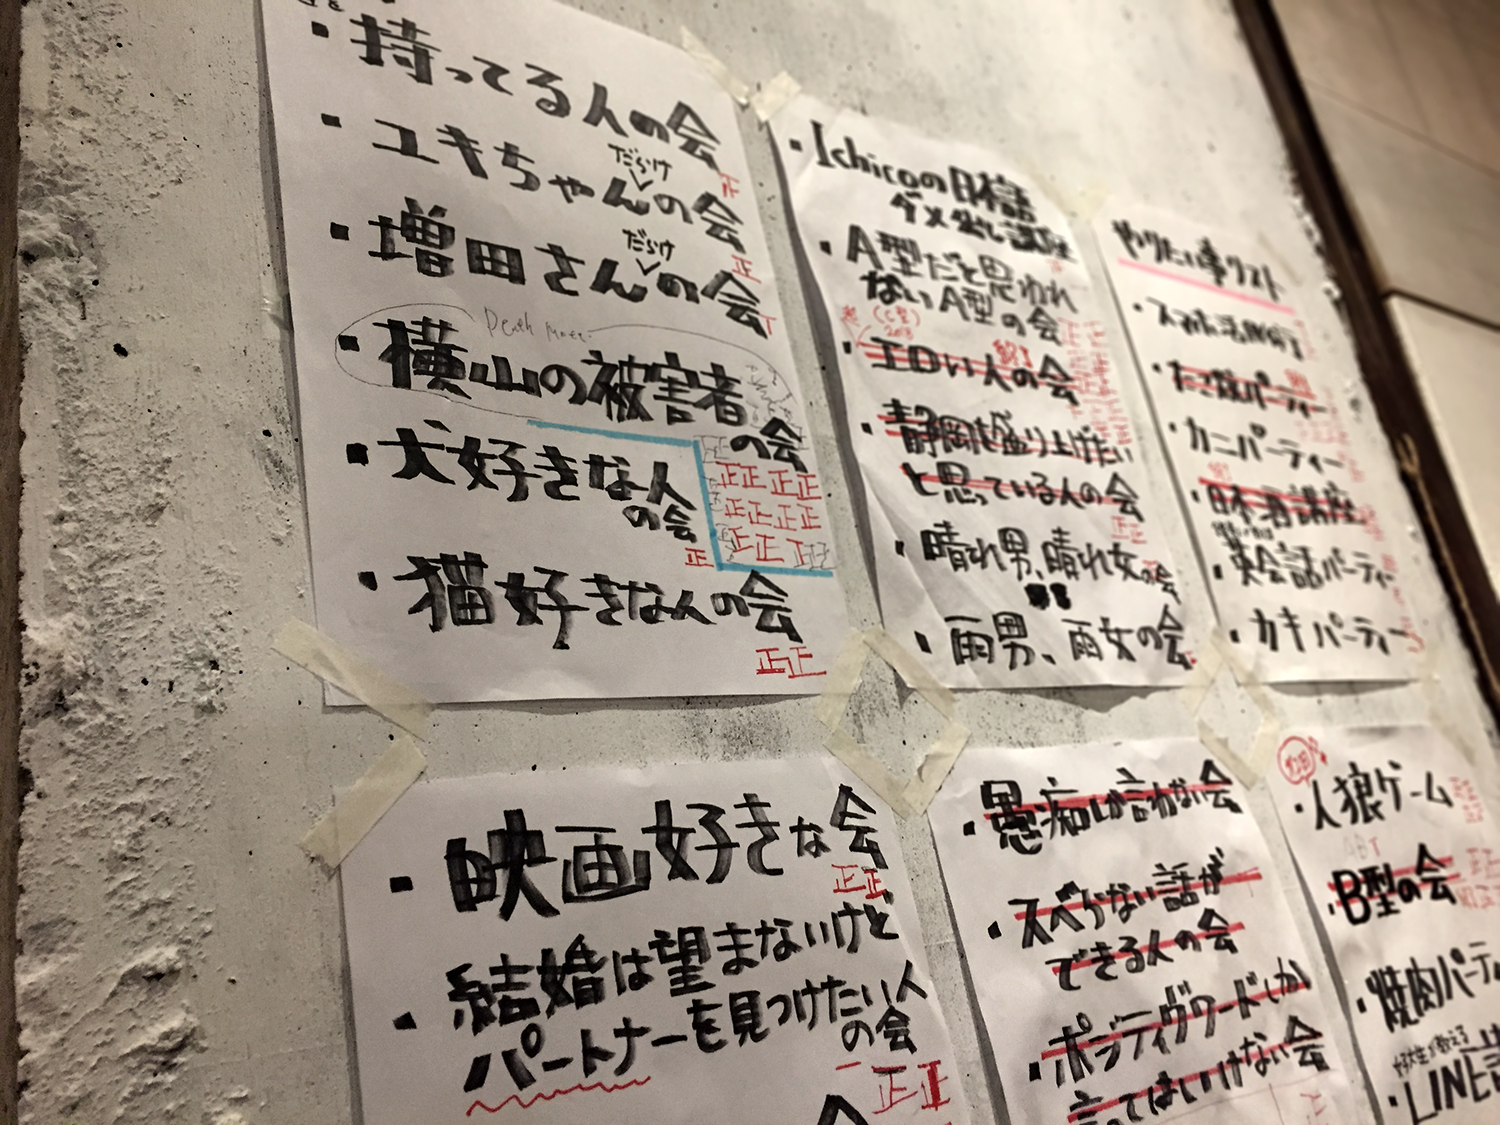 ・持ってる人の会
正
・ユキちゃんの会
だらけ
正
・増田さんの会
だらけ
・横山の被害者
の会
正正正正
正正正正
正正正
・犬好きな人
の会
正
・猫好きな人の会
正正
・Ichicoの日本語
ダメ出し講座
・A型だと思われ
ないA型の会
・エロい人の会
・静岡を盛り上げたい
と思っている人の会
・晴れ男、晴れ女の会
・雨男、雨女の会
やりたい事リスト
・たこ焼パーティー
・カニパーティー
・日本酒講座
・英会話パーティー
・カキパーティー
・映画好きな会
正正
・結婚は望まないけど
パートナーを見つけたい人
の会
正正
・愚痴しか言わない会
・スベらない話が
できる人の会
・ポジティヴワードしか
言ってはいけない会
・人狼ゲーム
・B型の会
・焼肉パーティ
・LINE講